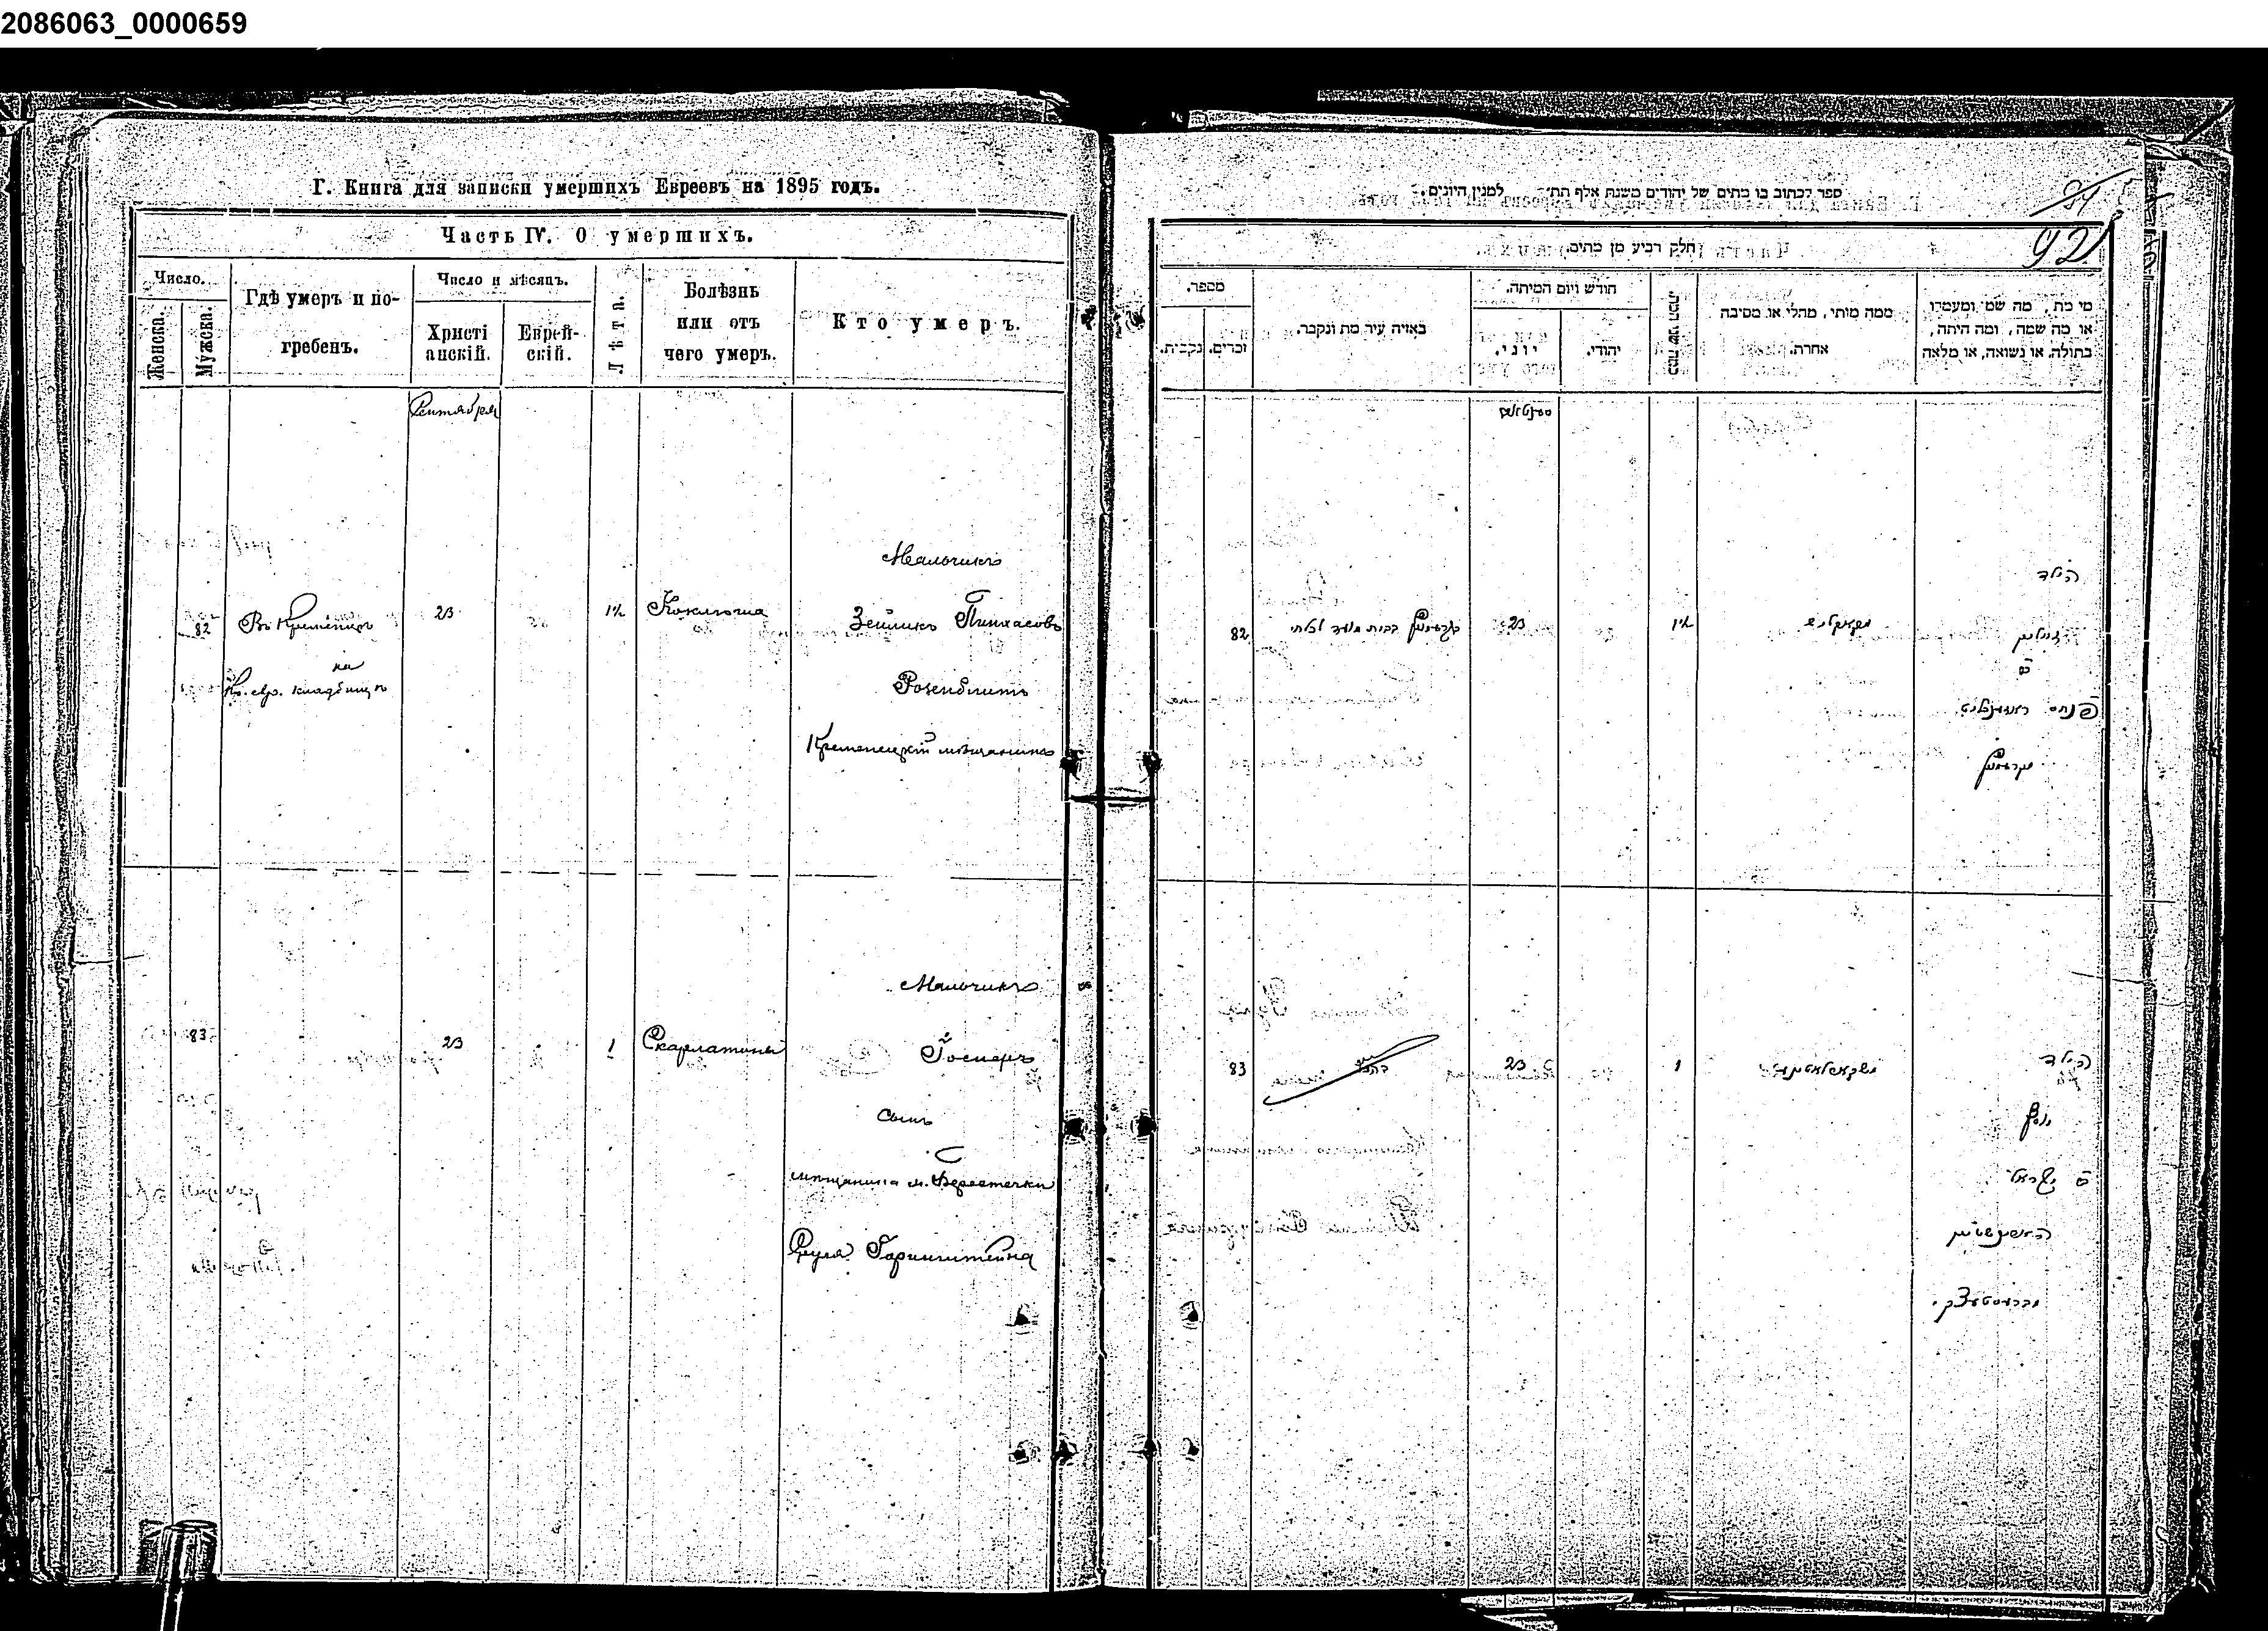 2086063_0000659
Г. Книга для записки умершихъ Евреевъ на 1895 годъ.
Часть IV. О умершихъ.
Число.
Женска.
Мужска.
Гдѣ умеръ и по-
гребенъ.
Число и мѣсяцъ.
Христі
анскій.
Еврей-
скій.
Лѣта.
Болѣзнь
или отъ
чего умеръ.
Кто умеръ.
Сентября
82
Въ Кременцѣ
на
Кр. евр. кладбищѣ
23
1½
Коклюша
Мальчикъ
Зейликъ Пинхасовъ
Розенблитъ
Кременецкій мѣщанинъ
83
23
1
Скарлатины
Мальчикъ
Іосифъ
сынъ
мѣщанина м. Берестечки
Срула Горинштейна
ספר לכתוב בו מתים של יהודים משנת אלף תת״ למנין היונים.
92
חלק רביע מן מתים.
מספר.
נקבית.
זכרים.
באיזה עיר מת ונקבר.
חודש ויום המיתה.
יוני.
יהודי.
ממה מותי, מהלי או מסיבה
אחרת.
מי מת, מה שמו ומעמדו
או מה שמה, ומה היתה,
בתולה, או נשואה, או מלאה
82
23
הילד
זיילק
פנחס ראזענבליט
83
23
1
הילד
יוסף
ישראל